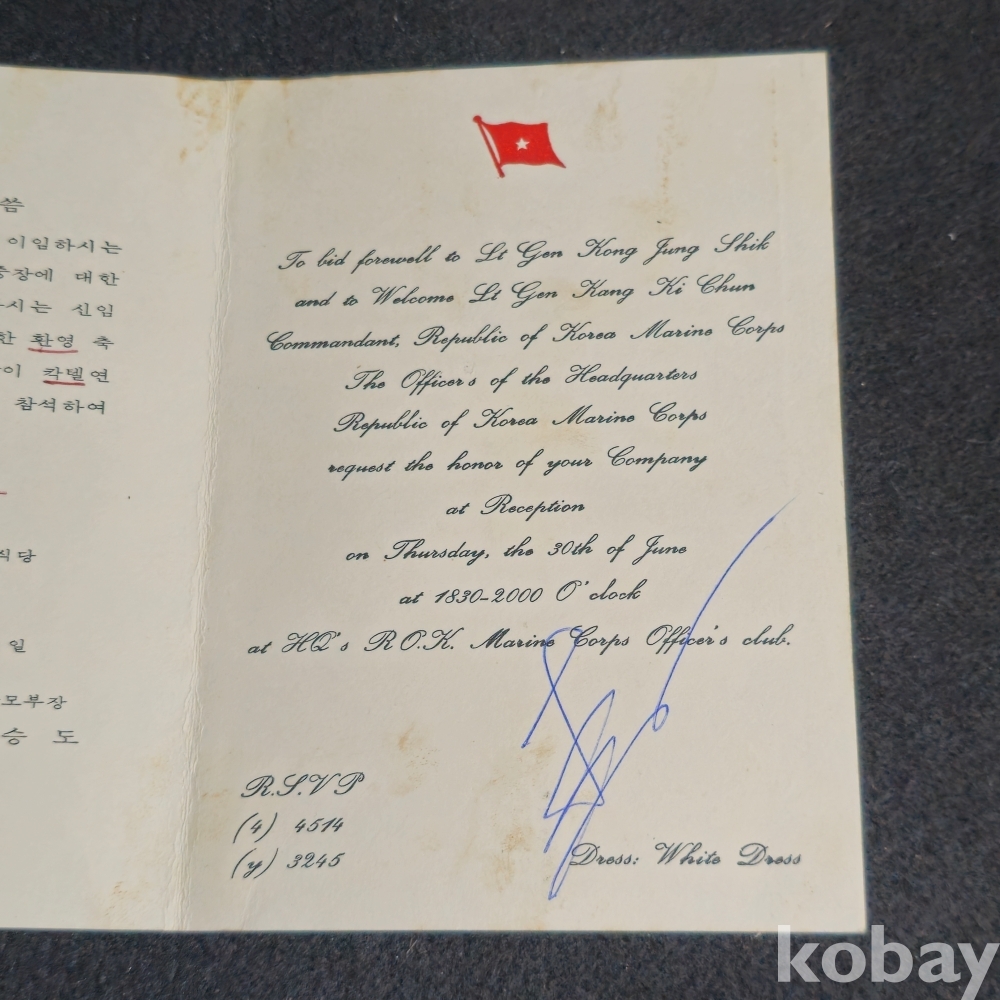 씀
이임하시는
중장에 대한
시는 신임
한 환영 축
이 칵텔연
참석하여
식당
일
모부장
승 도
To bid forewell to Lt Gen Kong Jung Shik
and to Welcome Lt Gen Kang Ki Chun
Commandant, Republic of Korea Marine Corps
The Officers of the Headquarters
Republic of Korea Marine Corps
request the honor of your Company
at Reception
on Thursday, the 30th of June
at 1830-2000 O'clock
at HQ's R.O.K. Marine Corps Officer's club.
R.S.V.P
(4) 4514
(y) 3245
Dress: White Dress
kobay